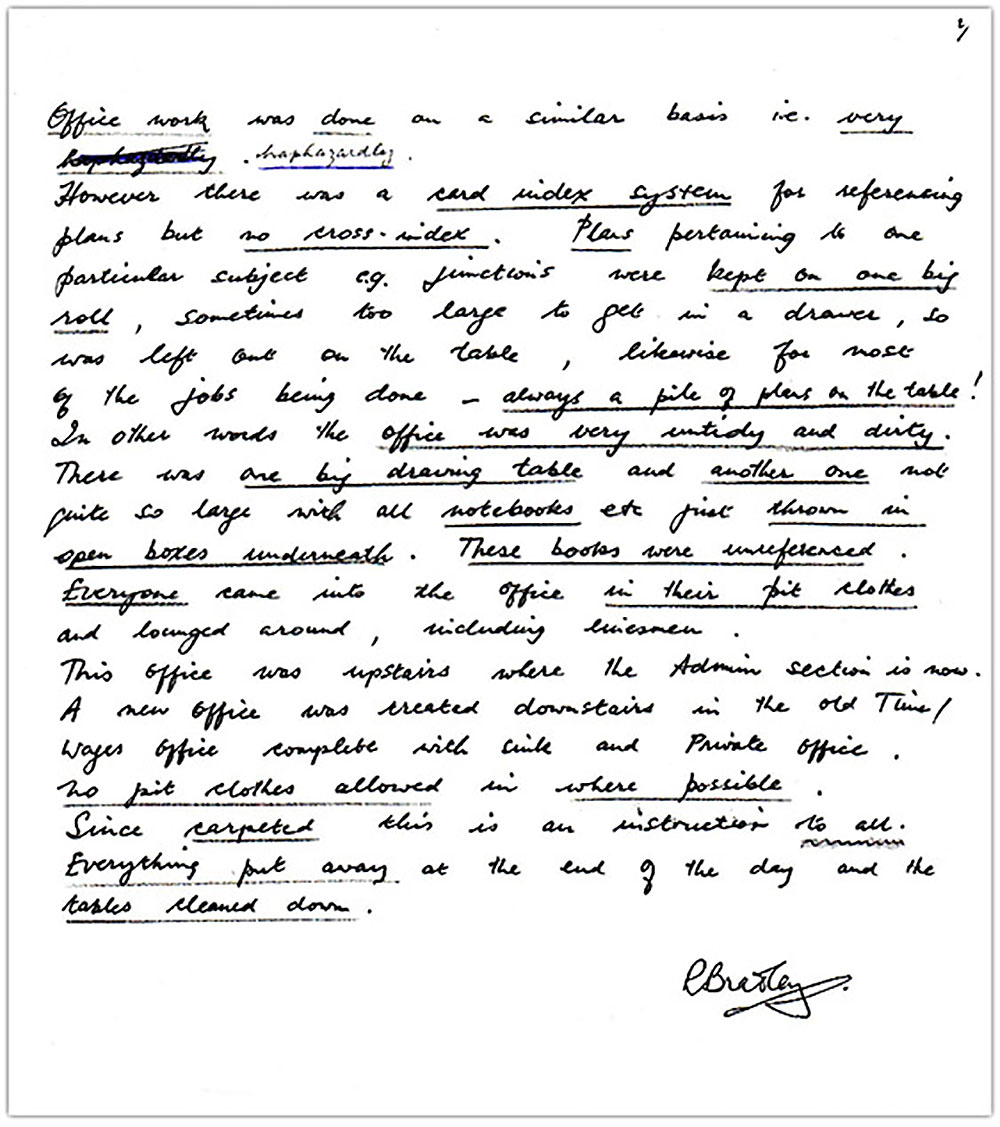 2/
Office work was done on a similar basis i.e. very
haphazardly. haphazardley.
However there was a card index system for referencing
plans but no cross-index. Plans pertaining to one
particular subject e.g. junction's were kept on one big
roll, sometimes too large to get in a drawer, so
was left out on the table, likewise for most
of the jobs being done - always a pile of plans on the table!
In other words the office was very untidy and dirty.
There was one big drawing table and another one not
quite so large with all notebooks etc just thrown in
open boxes underneath. These books were unreferenced.
Everyone came into the office in their pit clothes
and lounged around, including linesmen.
This office was upstairs where the Admin section is now.
A new office was created downstairs in the old Time/
Wages office complete with sink and Private office.
No pit clothes allowed in where possible.
Since carpeted this is an instruction to all.
Everything put away at the end of the day and the
tables cleaned down.